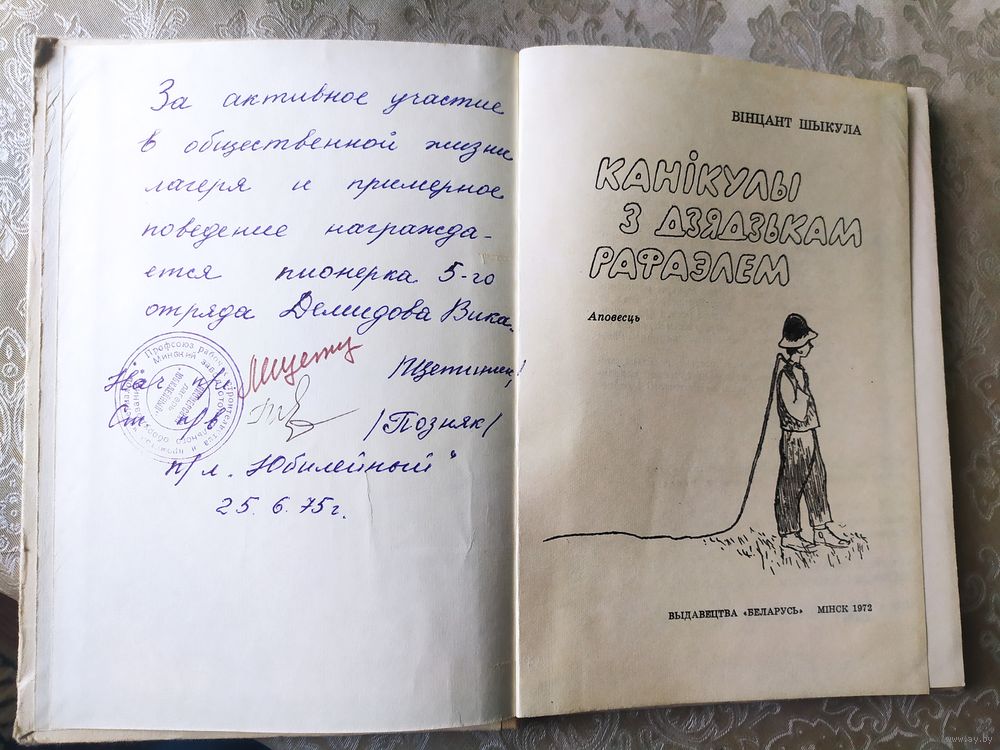 За активное участие
в общественной жизни
лагеря и примерное
поведение награжда-
ется пионерка 5-го
отряда Демидова Вика.
Нач. п/л /Щетинин/
Ст. п/в /Позняк/
п/л „Юбилейный"
25. 6. 75 г.
ВІНЦАНТ ШЫКУЛА
КАНІКУЛЫ
З ДЗЯДЗЬКАМ
РАФАЭЛЕМ
Аповесць
ВЫДАВЕЦТВА «БЕЛАРУСЬ» МІНСК 1972
www.ay.by